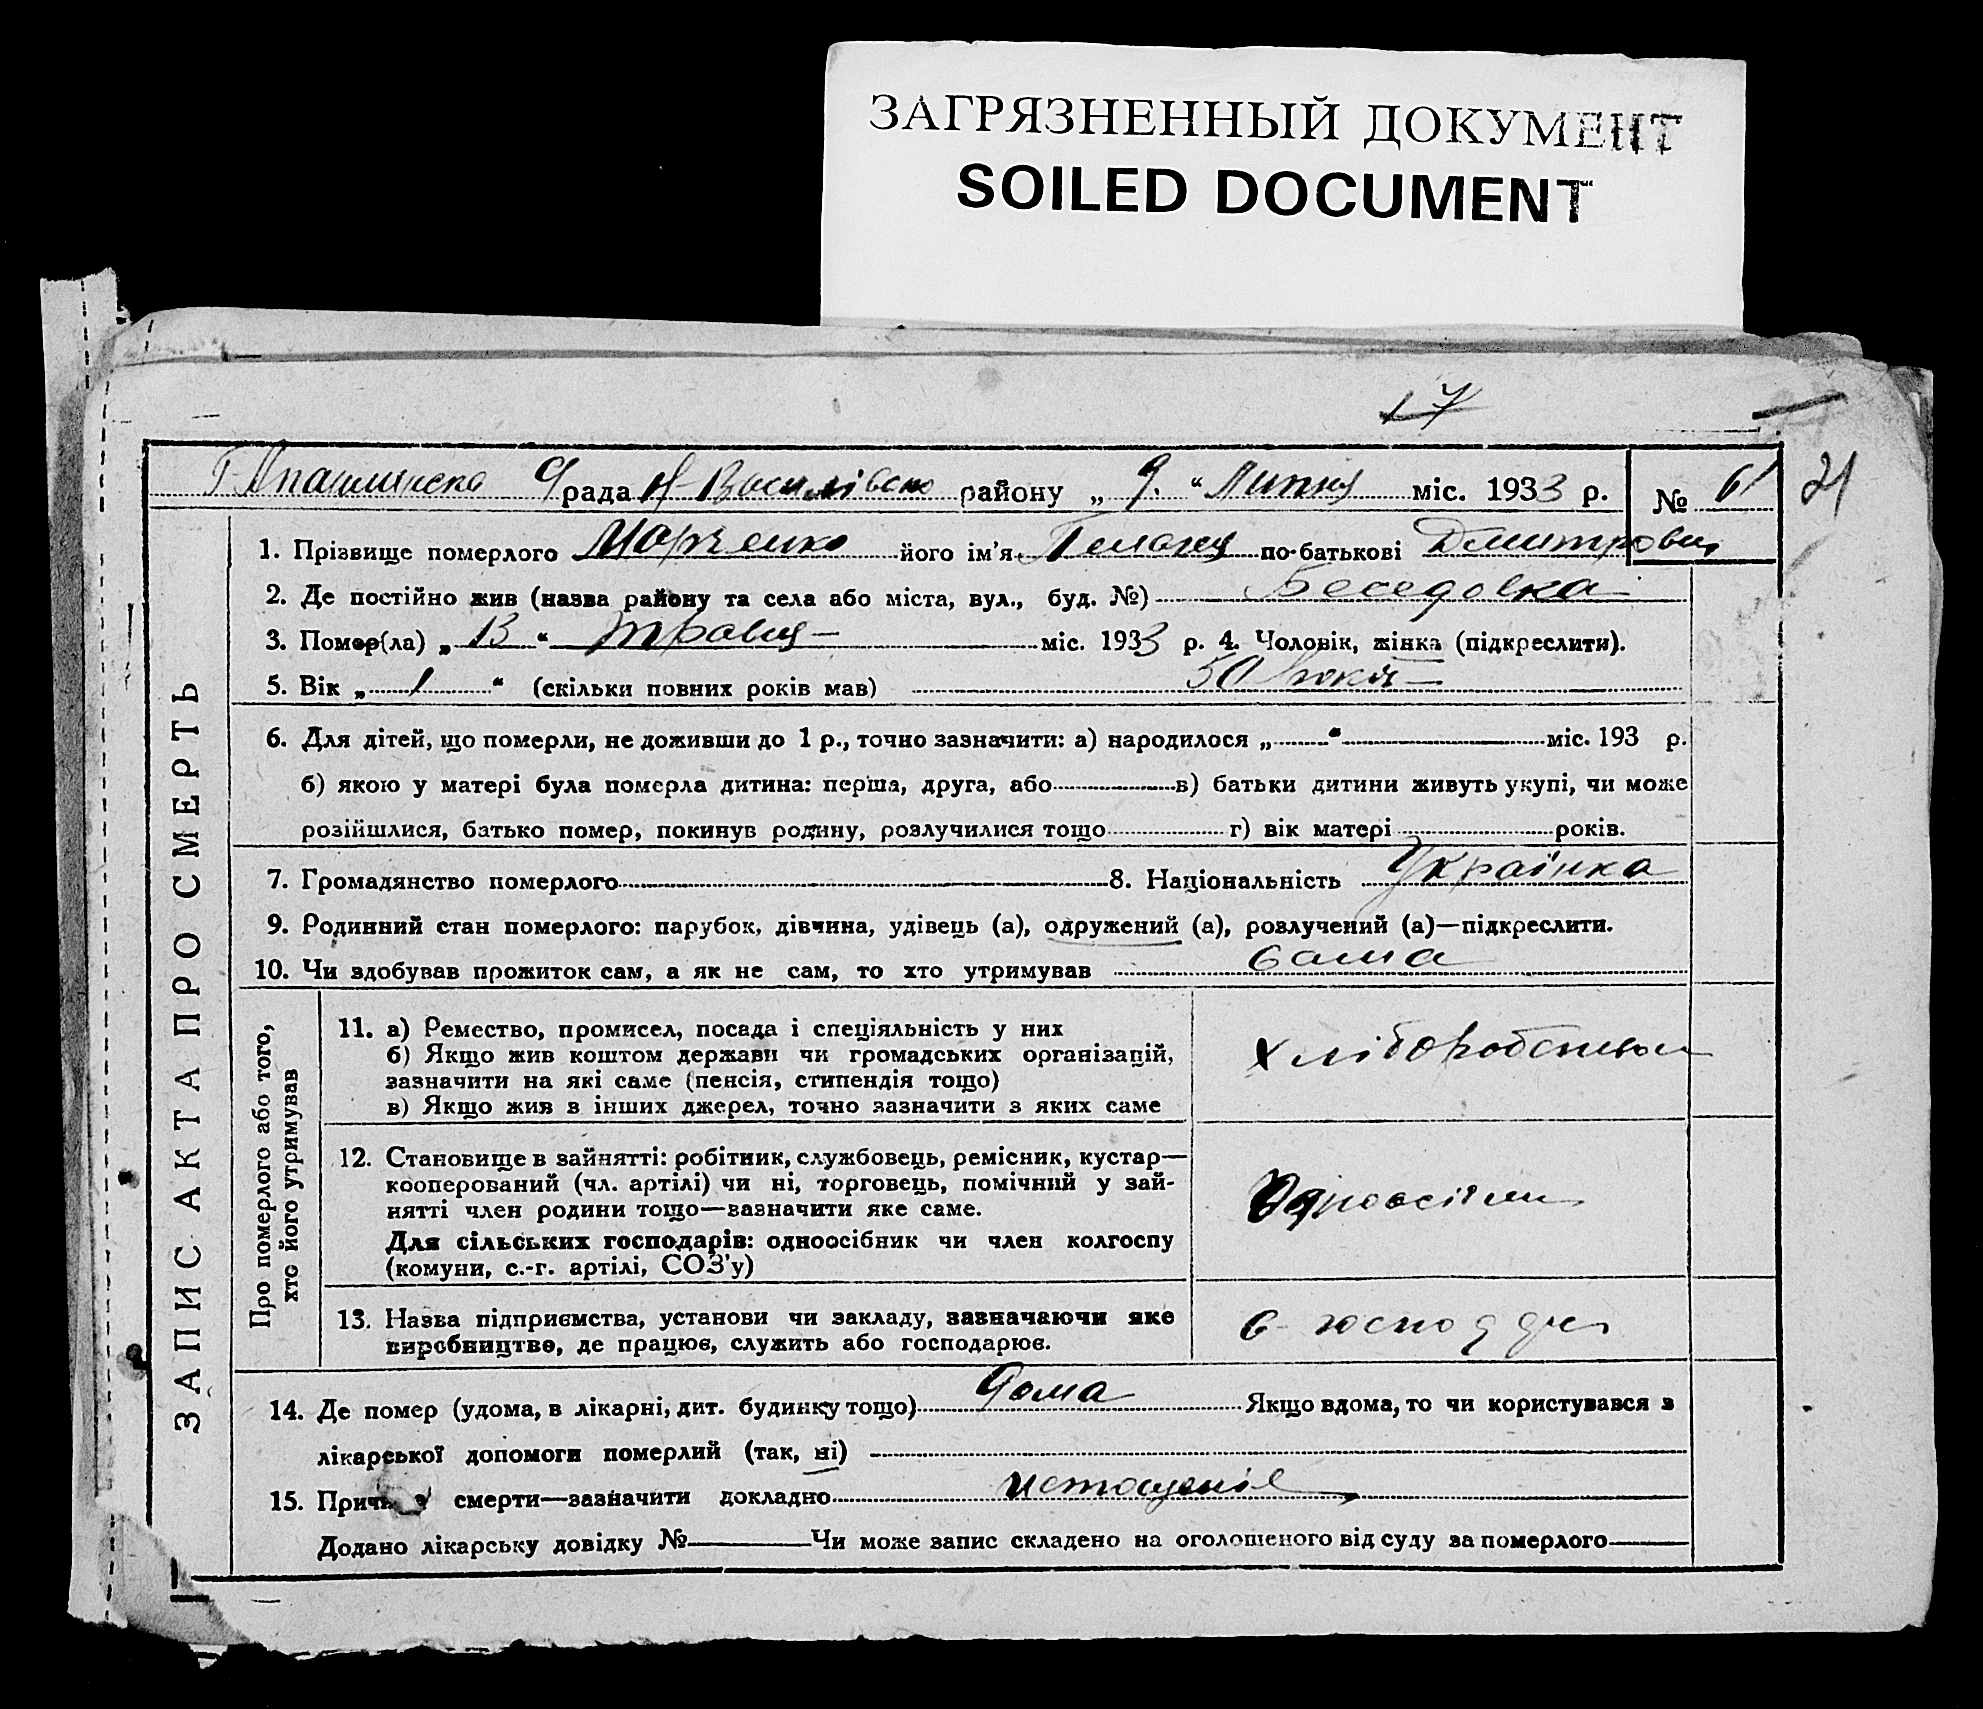 ЗАГРЯЗНЕННЫЙ ДОКУМЕНТ
SOILED DOCUMENT
17
рада Н-Василівсько району „ 9. “ Липня міс. 1933 р. № 61
21
1. Прізвище померлого Марченко його ім’я Пелагея по-батькові Дмитровна
2. Де постійно жив (назва району та села або міста, вул., буд. №) Беседовка
3. Помер(ла) „ 13 “ травня міс. 1933 р. 4. Чоловік, жінка (підкреслити).
5. Вік „ 1 “ (скільки повних років мав) 50 років
6. Для дітей, що померли, не доживши до 1 р., точно зазначити: а) народилося „ “ міс. 193 р.
б) якою у матері була померла дитина: перша, друга, або в) батьки дитини живуть укупі, чи може
розійшлися, батько помер, покинув родину, розлучилися тощо г) вік матері років.
7. Громадянство померлого 8. Національність Українка
9. Родинний стан померлого: парубок, дівчина, удівець (а), одружений (а), розлучений (а)—підкреслити.
10. Чи здобував прожиток сам, а як не сам, то хто утримував сама
ЗАПИС АКТА ПРО СМЕРТЬ
Про померлого або того,
хто його утримував
11. а) Ремество, промисел, посада і спеціяльність у них
б) Якщо жив коштом держави чи громадських організацій,
зазначити на які саме (пенсія, стипендія тощо)
в) Якщо жив з інших джерел, точно зазначити з яких саме
хліборобством
12. Становище в зайнятті: робітник, службовець, ремісник, кустар—
кооперований (чл. артілі) чи ні, торговець, помічний у зай-
нятті член родини тощо—зазначити яке саме.
Для сільських господарів: одноосібник чи член колгоспу
(комуни, с.-г. артілі, СОЗ’у)
13. Назва підприємства, установи чи закладу, зазначаючи яке
виробництво, де працює, служить або господарює.
14. Де помер (удома, в лікарні, дит. будинку тощо) Дома Якщо вдома, то чи користувався з
лікарської допомоги померлий (так, ні)
15. Причина смерти—зазначити докладно истощеніе
Додано лікарську довідку № Чи може запис складено на оголошеного від суду за померлого